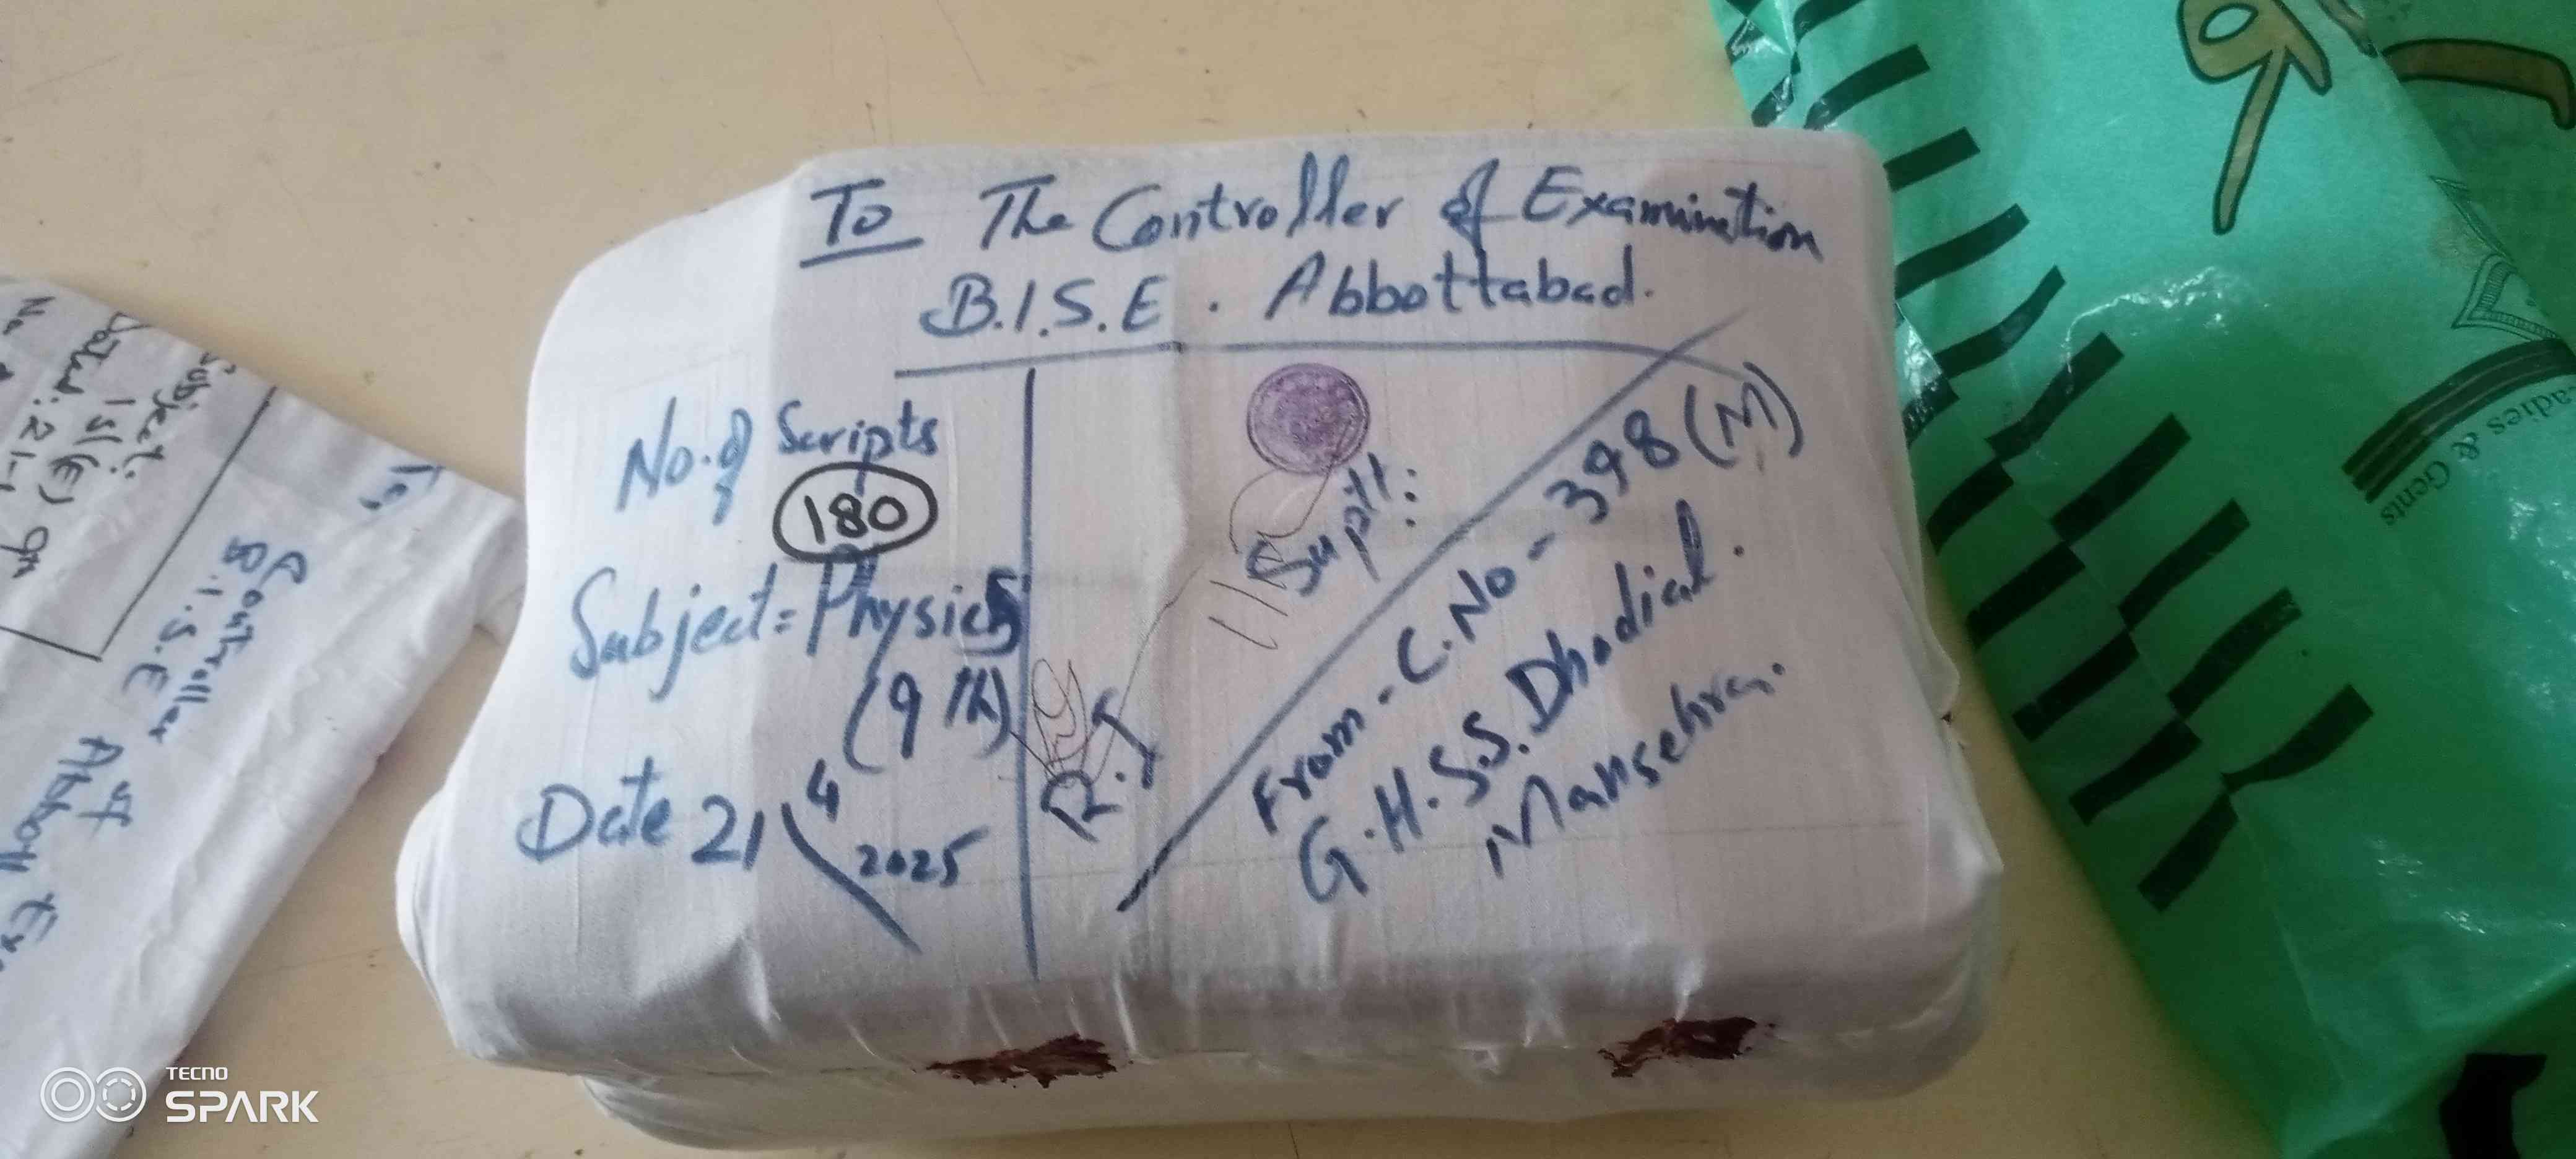 To The Controller of Examination
B.I.S.E. Abbottabad.
No. of Scripts
180
Subject = Physics
(9th)
Date 21/4/2025
Suptt:
R.I
From - C.No - 398 (M)
G.H.S.S. Dhodial.
Mansehra.
To,
Controller of Ex
B.I.S.E Abbott
Subject:
Isl(E) 9th
Dated: 21-
adies & Gents
TECNO
SPARK